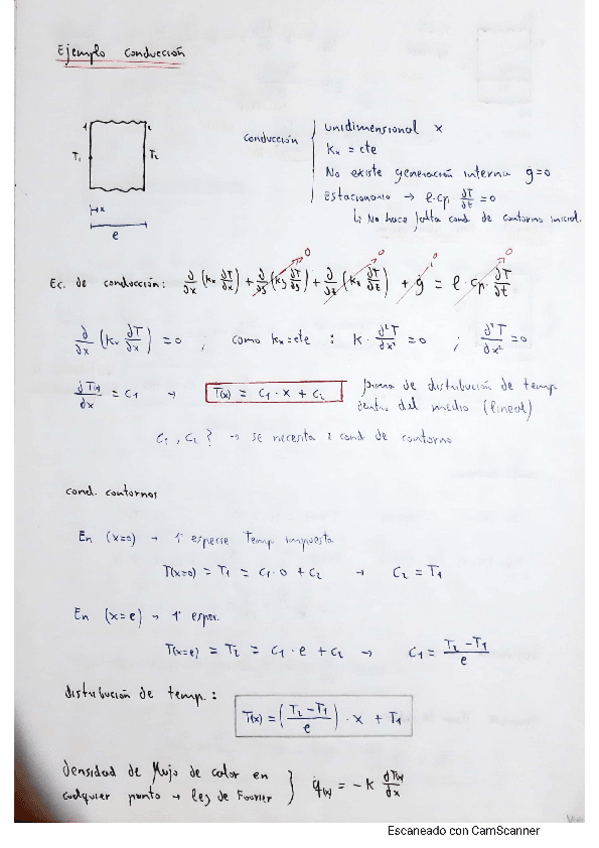 Ejemplo conducción
1 2
T₁ T₂
x
e
conducción
unidimensional x
kₓ = cte
No existe generación interna ġ=0
Estacionario → ρ·cp ∂T/∂t = 0
↳ No hace falta cond. de contorno inicial.
0 0 0 0
Ec. de conducción: ∂/∂x (kₓ ∂T/∂x) + ∂/∂y (ky ∂T/∂y) + ∂/∂z (kz ∂T/∂z) + ġ = ρ·cp· ∂T/∂t
∂/∂x (kₓ ∂T/∂x) = 0 ; como kₓ=cte : k· ∂²T/∂x² = 0 ; ∂²T/∂x² = 0
∂T(x)/∂x = C₁ → T(x) = C₁·x + C₂ forma de distribución de temp
dentro del medio (lineal)
C₁, C₂? → se necesita 2 cond de contorno
cond. contornos
En (x=0) → 1ª especie Temp impuesta
T(x=0) = T₁ = C₁·0 + C₂ → C₂ = T₁
En (x=e) → 1ª espec.
T(x=e) = T₂ = C₁·e + C₂ → C₁ = (T₂-T₁)/e
distribución de temp:
T(x) = ((T₂-T₁)/e)·x + T₁
densidad de flujo de calor en
cualquier punto → ley de Fourier } q̇(x) = -k dT(x)/dx
Escaneado con CamScanner